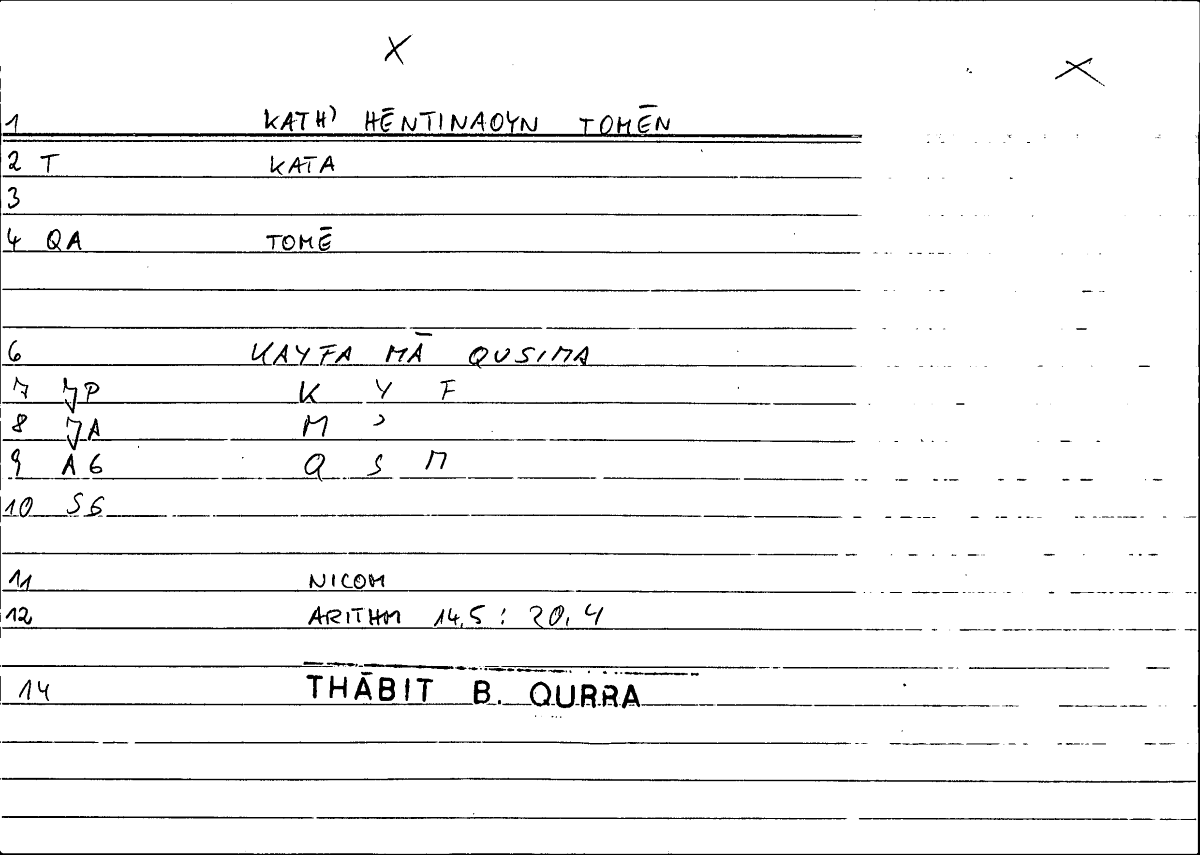 X X
1 KATH) HĒNTINAOYN TOMĒN
2 T KATA
3
4 QA TOMĒ
6 KAYFA MĀ QUSIMA
7 JP K Y F
8 JA M ʾ
9 A6 Q S M
10 S6
11 NICOM
12 ARITHM 14,5 : 20,4
14 THĀBIT B. QURRA